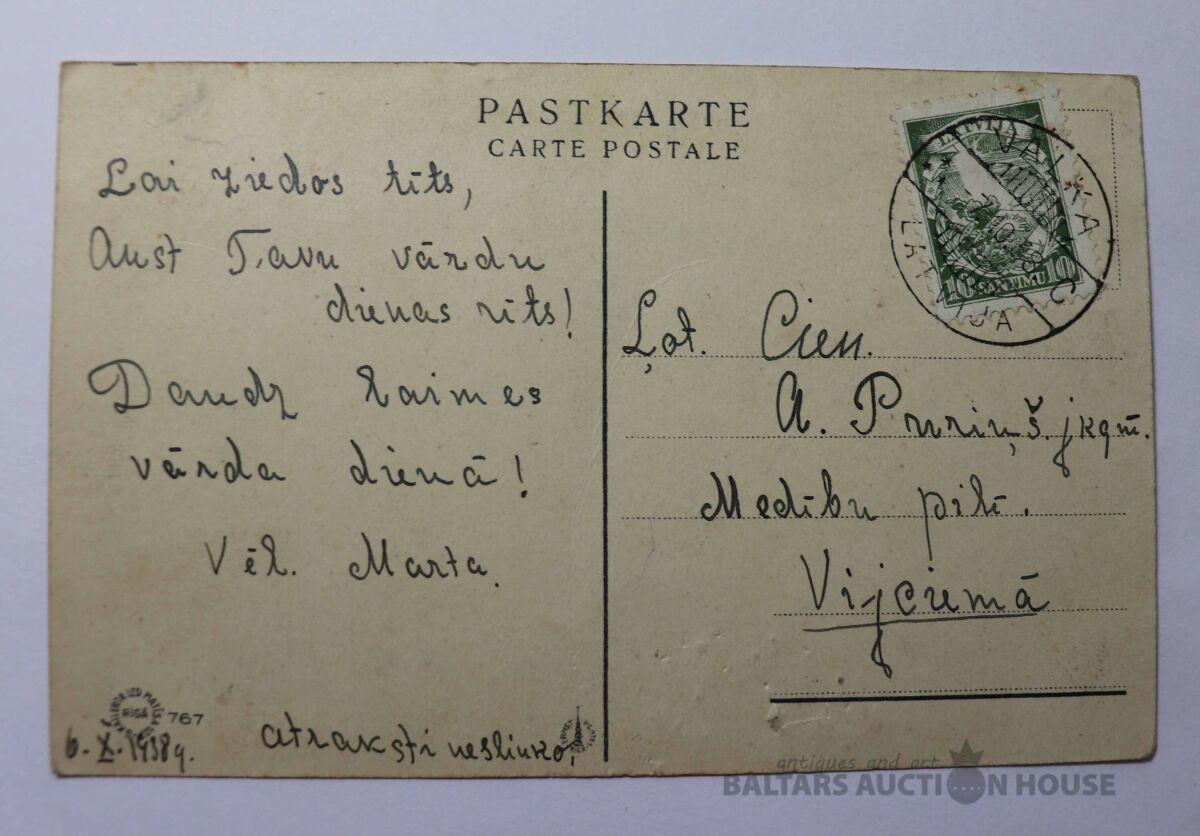 PASTKARTE
CARTE POSTALE
Lai ziedos tīts,
Aust Tavu vārdu
dienas rīts!
Daudz laimes
vārda dienā!
Vēl. Marta.
6. X. 1938g.
atraksti neslinko,
RĪGĀ
767
LATVIJA
10 SANTĪMU 10
VALKA
LATVIJA
Ļot. Cien.
A. Pruriņš. jkgm.
Medību pilī.
Vijciemā
antiques and art
BALTARS AUCTION HOUSE